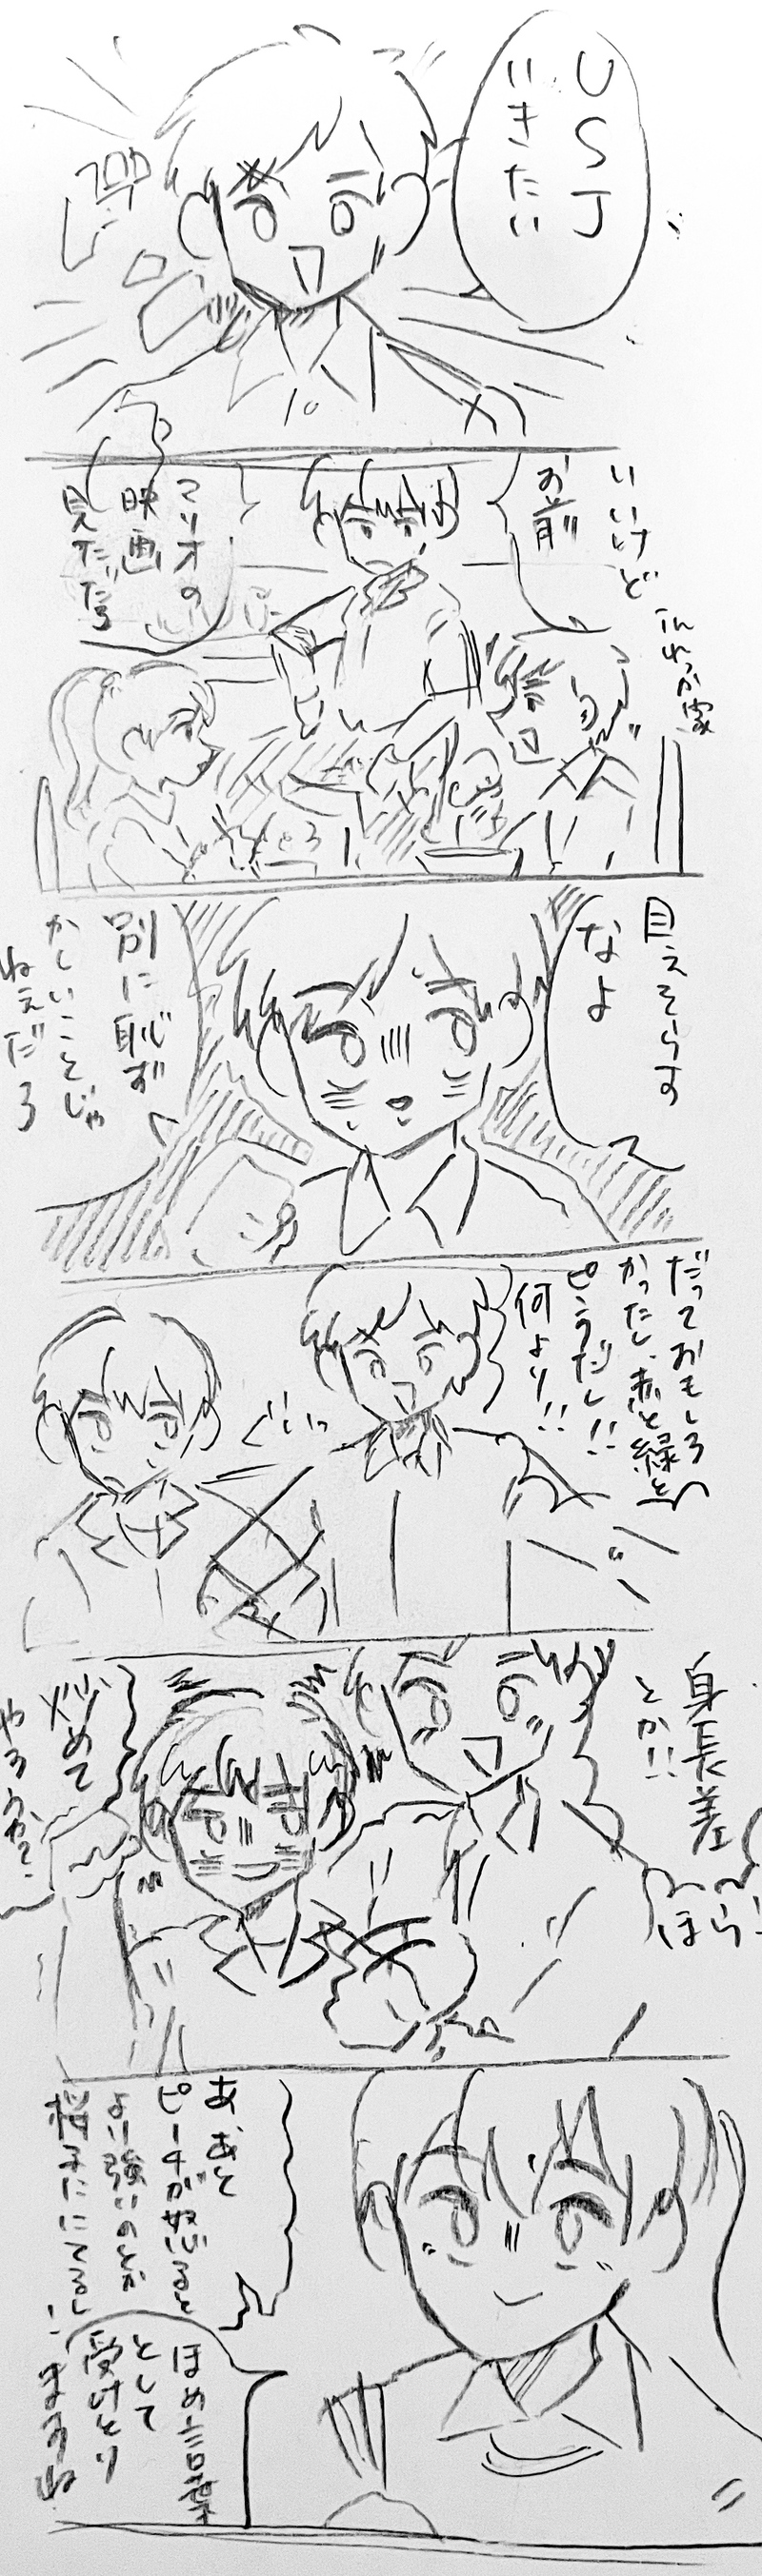 USJ
いきたい
いいけど
お前
マリオの
映画
見ただろ
目えそらす
なよ
別に恥ず
かしいことじゃ
ねえだろ
だっておもしろ
かったし、赤と緑と
何より!!
ぐいっ
身長差
とか!!
ほら!
やめて
やろうか?
あ あと
ピーチが怒ると
より強いのとか
ほめ言葉
として
受けとり
ますね